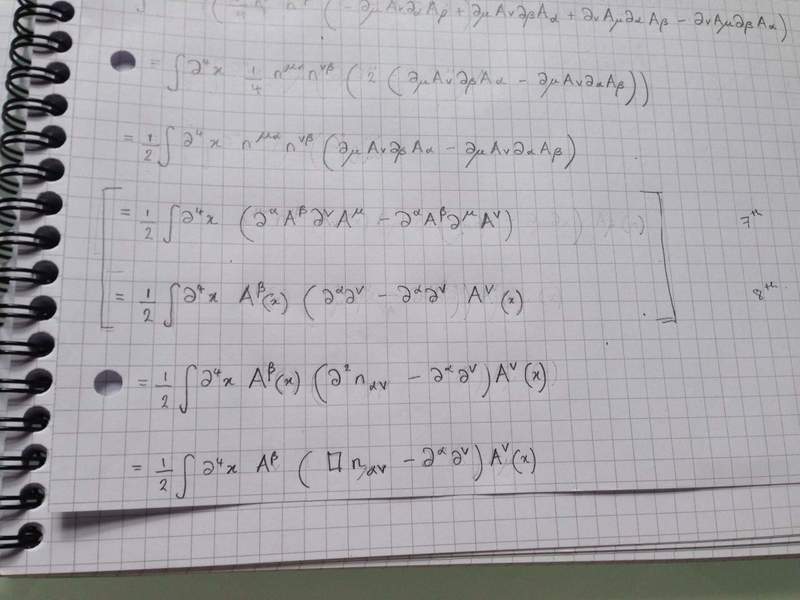 ( 1/4 n n ( - ∂μAν∂αAβ + ∂μAν∂βAα + ∂νAμ∂αAβ - ∂νAμ∂βAα )
= ∫∂⁴x 1/4 n^μα n^νβ ( 2 ( ∂μAν∂βAα - ∂μAν∂αAβ ))
= 1/2 ∫∂⁴x n^μα n^νβ ( ∂μAν∂βAα - ∂μAν∂αAβ )
= 1/2 ∫∂⁴x ( ∂^αA^β∂^νA^μ - ∂^αA^β∂^μA^ν ) 7th
= 1/2 ∫∂⁴x A^β(x) ( ∂^α∂^ν - ∂^α∂^ν ) A^ν(x) 8th
= 1/2 ∫∂⁴x A^β(x) ( ∂²n_αν - ∂^α∂^ν ) A^ν(x)
= 1/2 ∫∂⁴x A^β ( □ n_αν - ∂^α∂^ν ) A^ν(x)